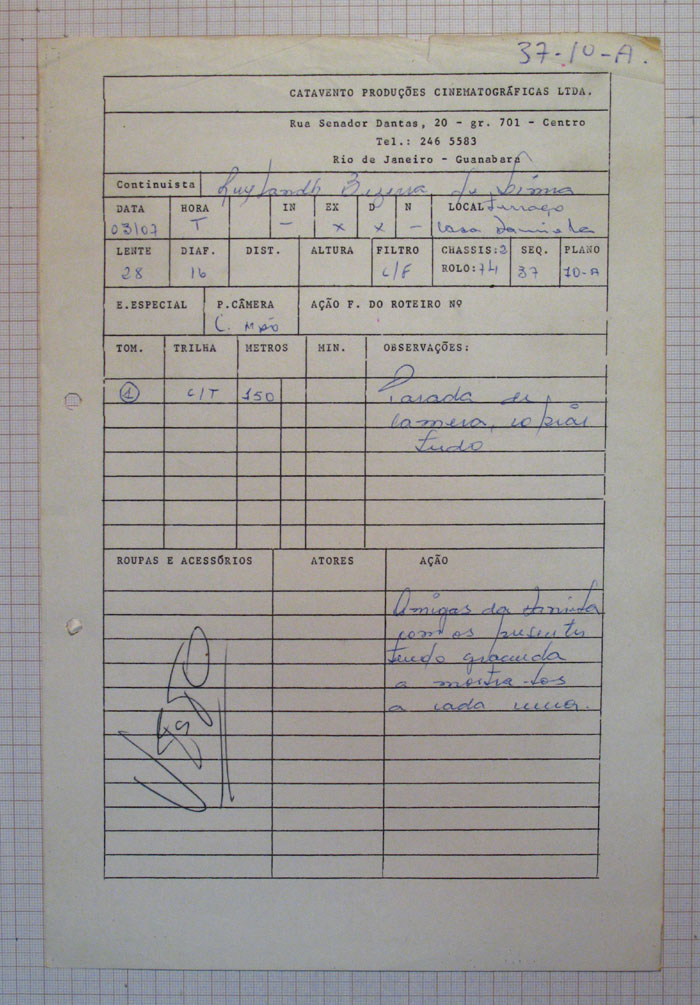 37-10-A.
CATAVENTO PRODUÇÕES CINEMATOGRÁFICAS LTDA.
Rua Senador Dantas, 20 - gr. 701 - Centro
Tel.: 246 5583
Rio de Janeiro - Guanabara
Continuista Bezerra de
DATA HORA IN EX D N LOCAL Terraço
03/07 T - x x - Casa Daniela
LENTE DIAF. DIST. ALTURA FILTRO CHASSIS:3 SEQ. PLANO
28 16 C/F ROLO:74 37 10-A
E.ESPECIAL P.CÂMERA AÇÃO F. DO ROTEIRO Nº
C. mão
TOM. TRILHA METROS MIN. OBSERVAÇÕES:
1 C/T 150 Parada de
camera, copiar
tudo
ROUPAS E ACESSÓRIOS ATORES AÇÃO
Amigas da Daniela
com os presentes
tendo
a mostra-los
a cada uma.